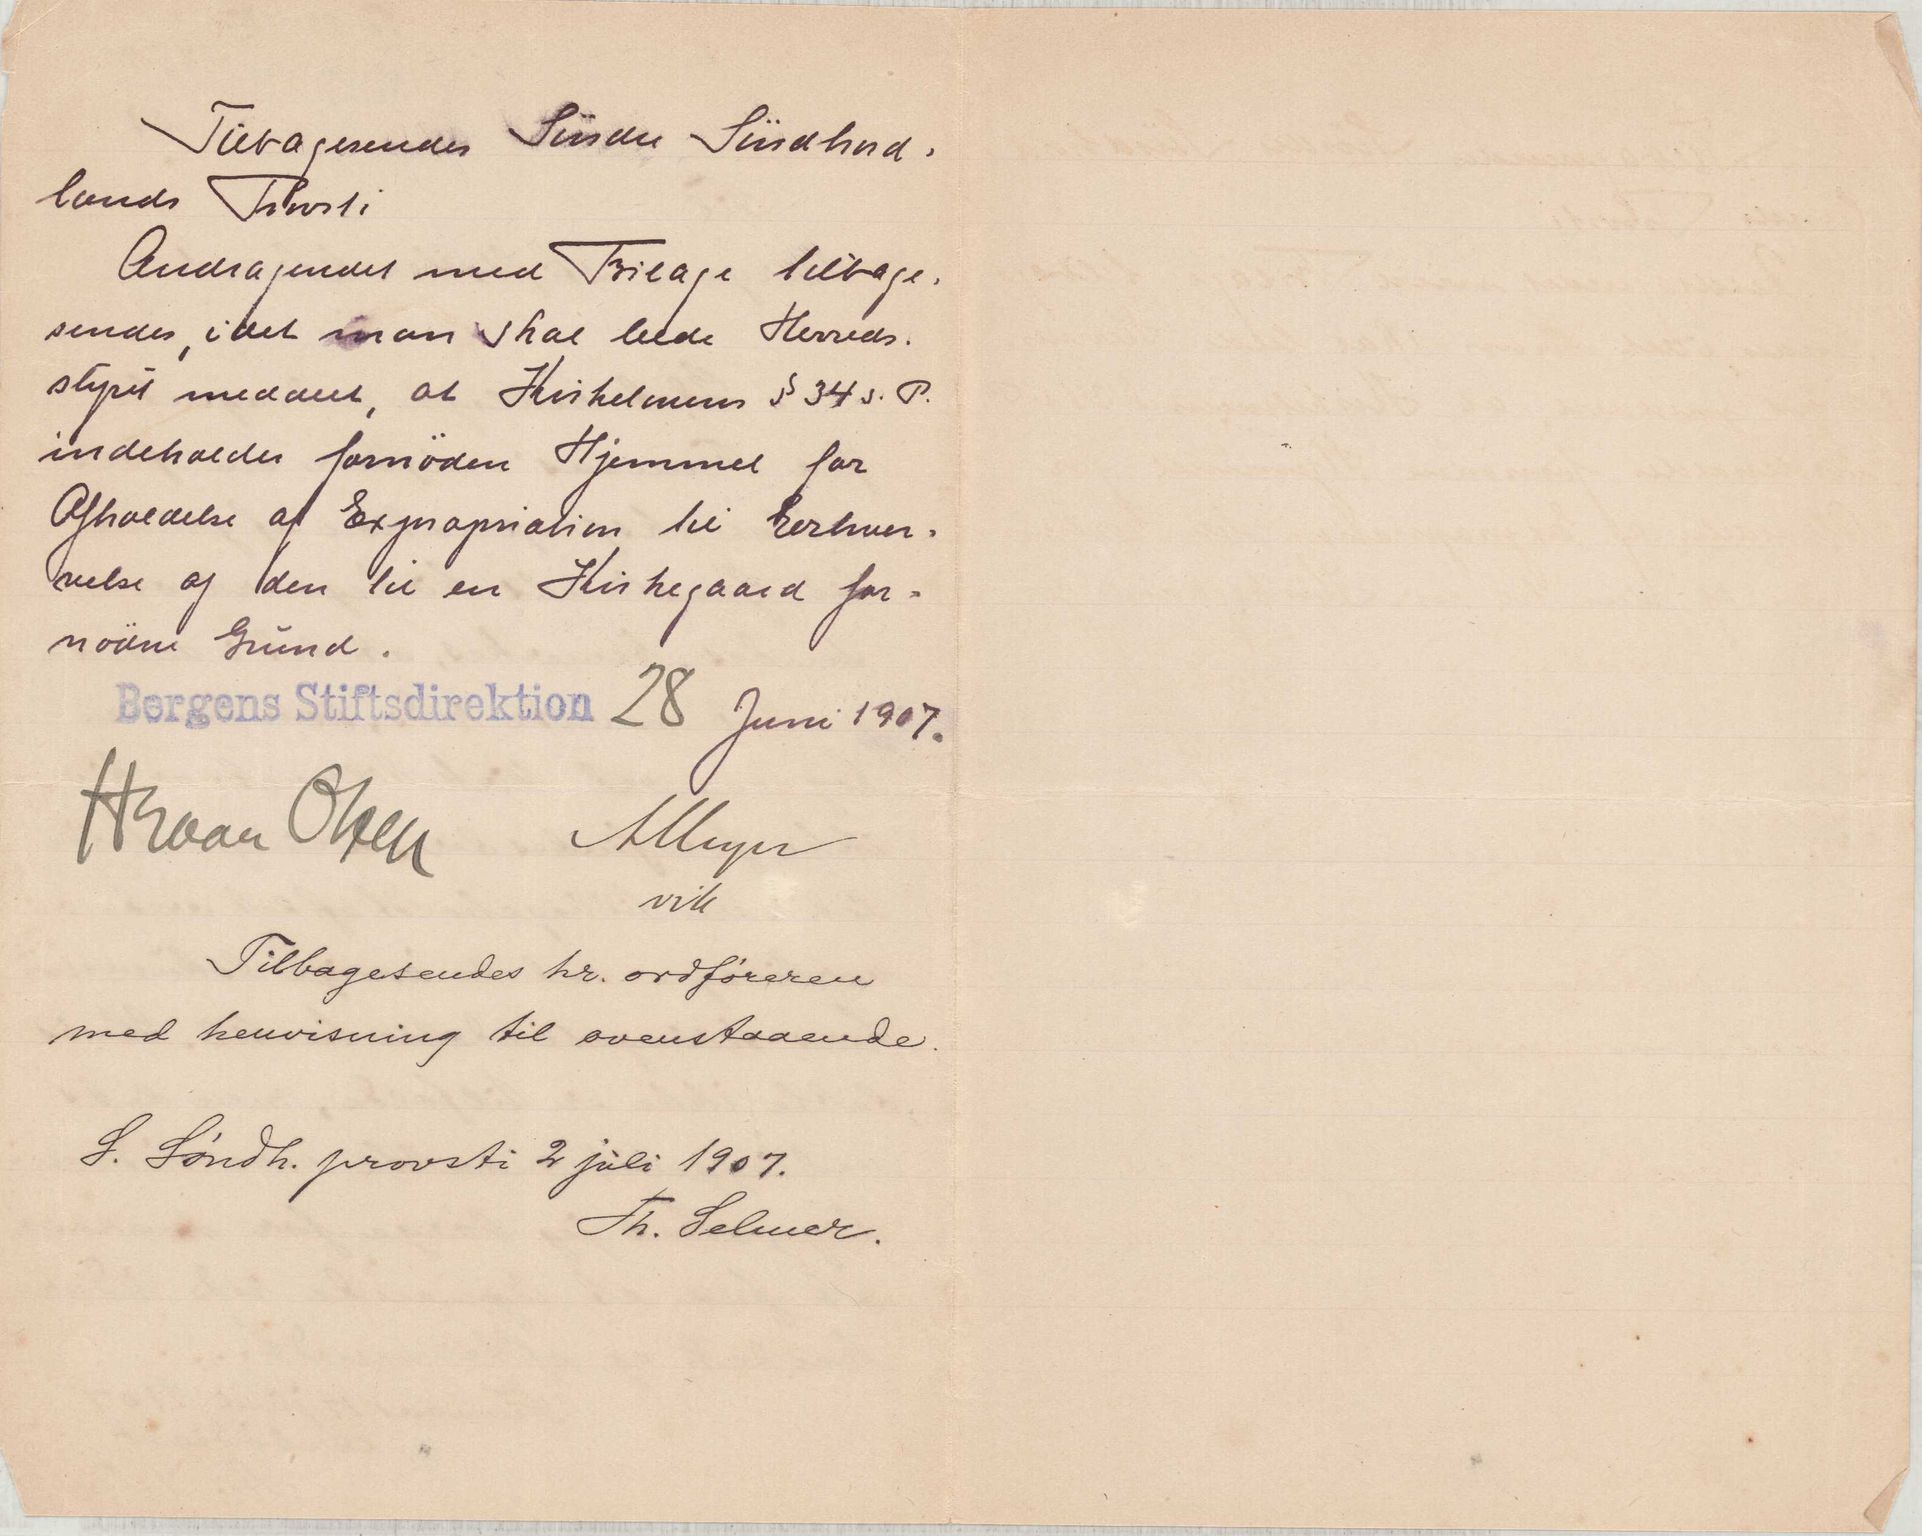 Tilbagesendes Søndre Søndhord-
lands Provsti
Andragendet med Bilage tilbage-
sendes, idet man skal bede Herreds-
styret meddelt, at Kirkelovens § 34 s. P.
indeholder fornöden Hjemmel for
Afholdelse af Expropriation til Erhver-
velse af den til en Kirkegaard for-
nödne Grund.
Bergens Stiftsdirektion 28 Juni 1907.
Hroar Olsen
Tilbagesendes hr. ordföreren
med henvisning til ovenstaaende.
S. Söndh. provsti 2 juli 1907.
Th. Selmer.